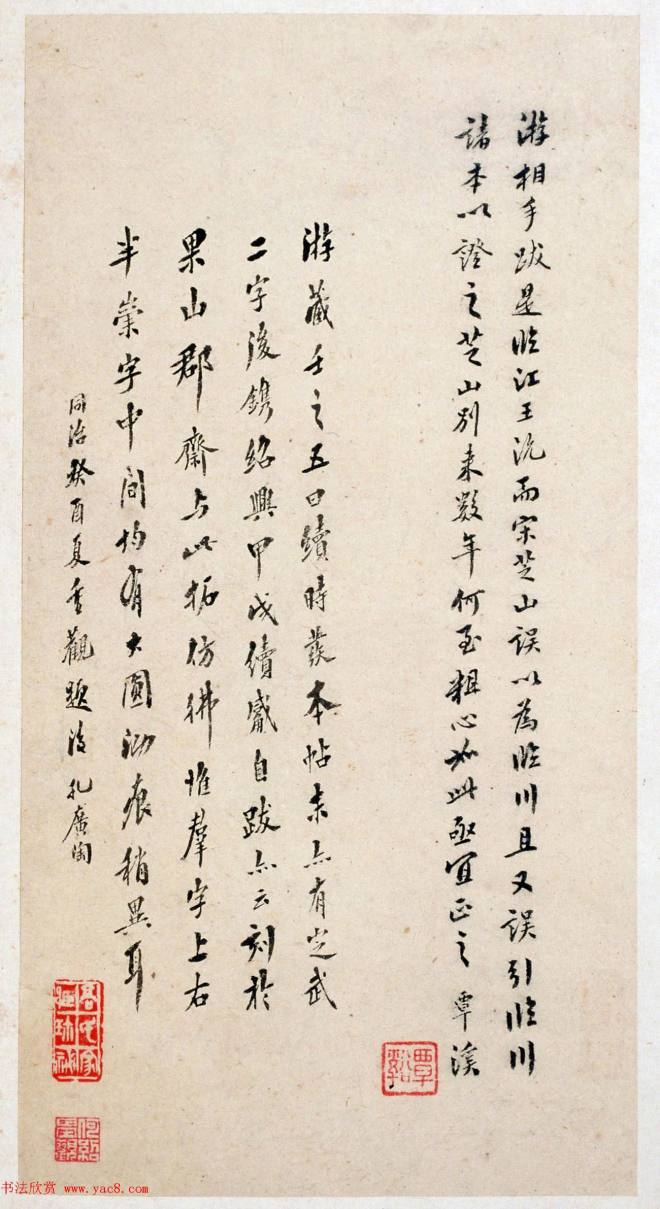 游相手跋是臨江王沇而宋芝山誤以為臨川且又誤引臨川
諸本以證之芝山別來數年何至粗心如此亟宜正之 覃溪
覃谿
游藏壬之五曰續時發本帖末亦有定武
二字後鐫紹興甲戌續觽自跋亦云刻於
果山郡齋与此拓仿彿惟羣字上右
半崇字中間均有大圓泐痕稍異耳
同治癸酉夏重觀題後孔廣陶
書法欣赏 www.yac8.com